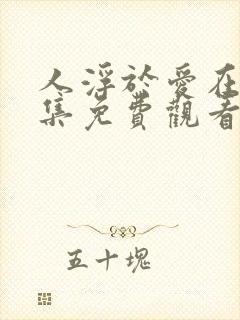 人浮於愛在
集免費觀看
五十塊